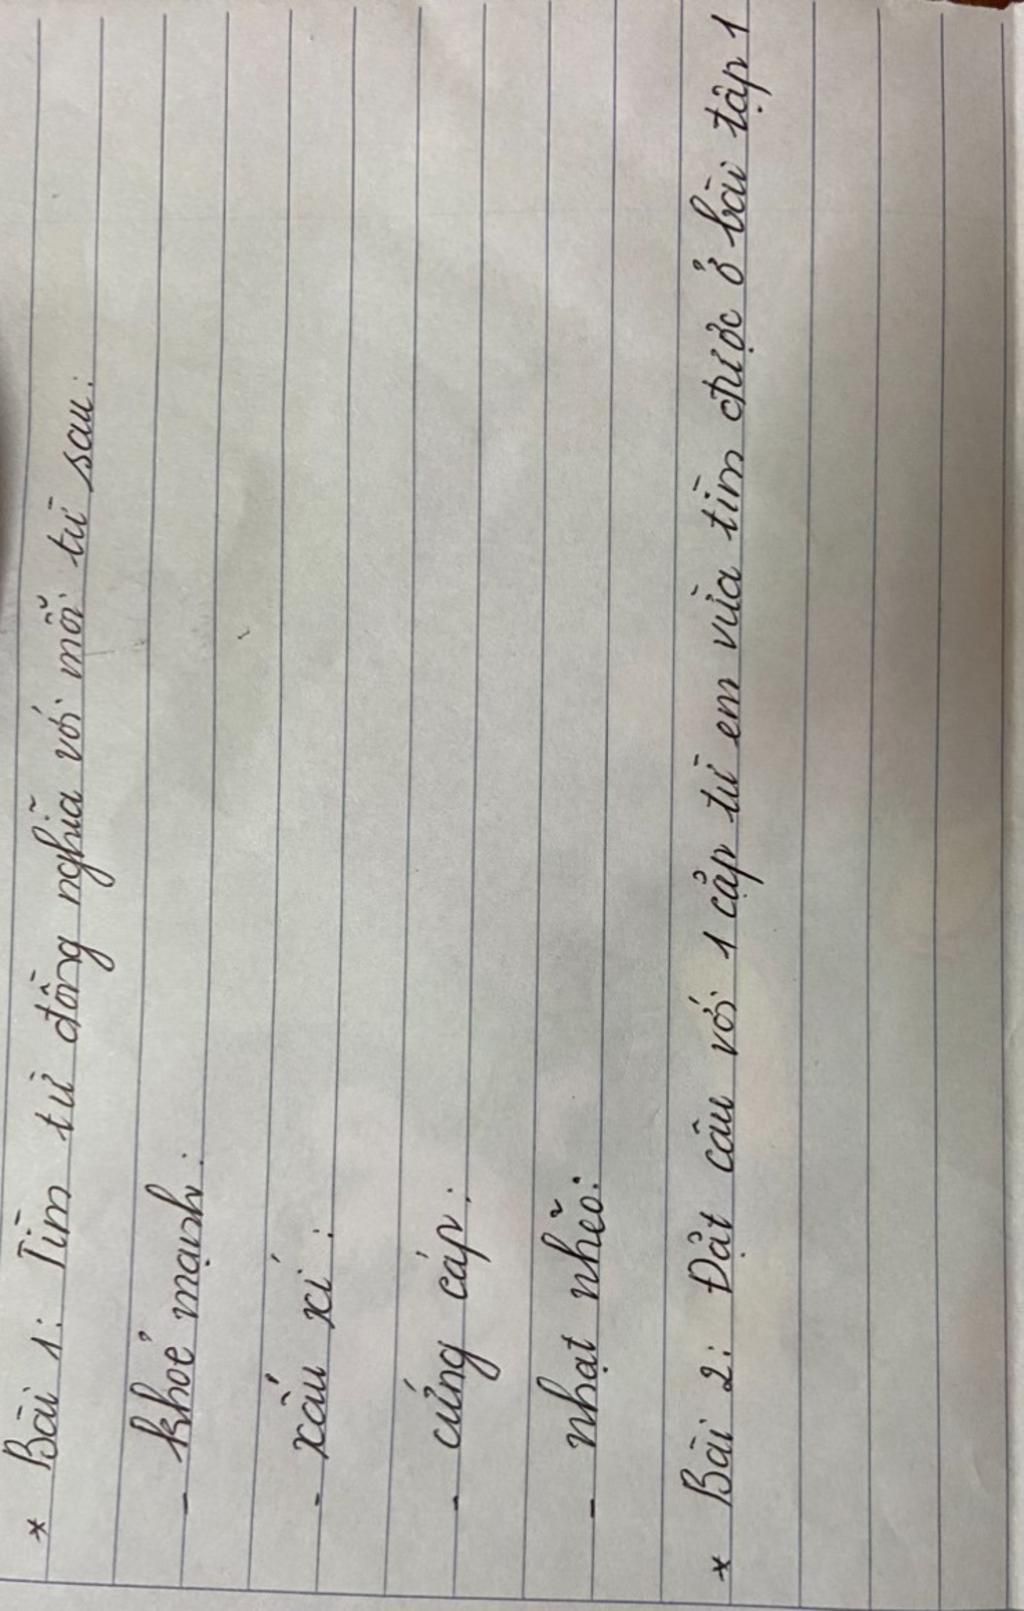 * Bài 1: Tìm từ đồng nghĩa với mỗi từ sau:
- khoẻ mạnh:
- xấu xí:
- cứng cáp:
- nhạt nhẽo:
* Bài 2: Đặt câu với 1 cặp từ em vừa tìm được ở bài tập 1